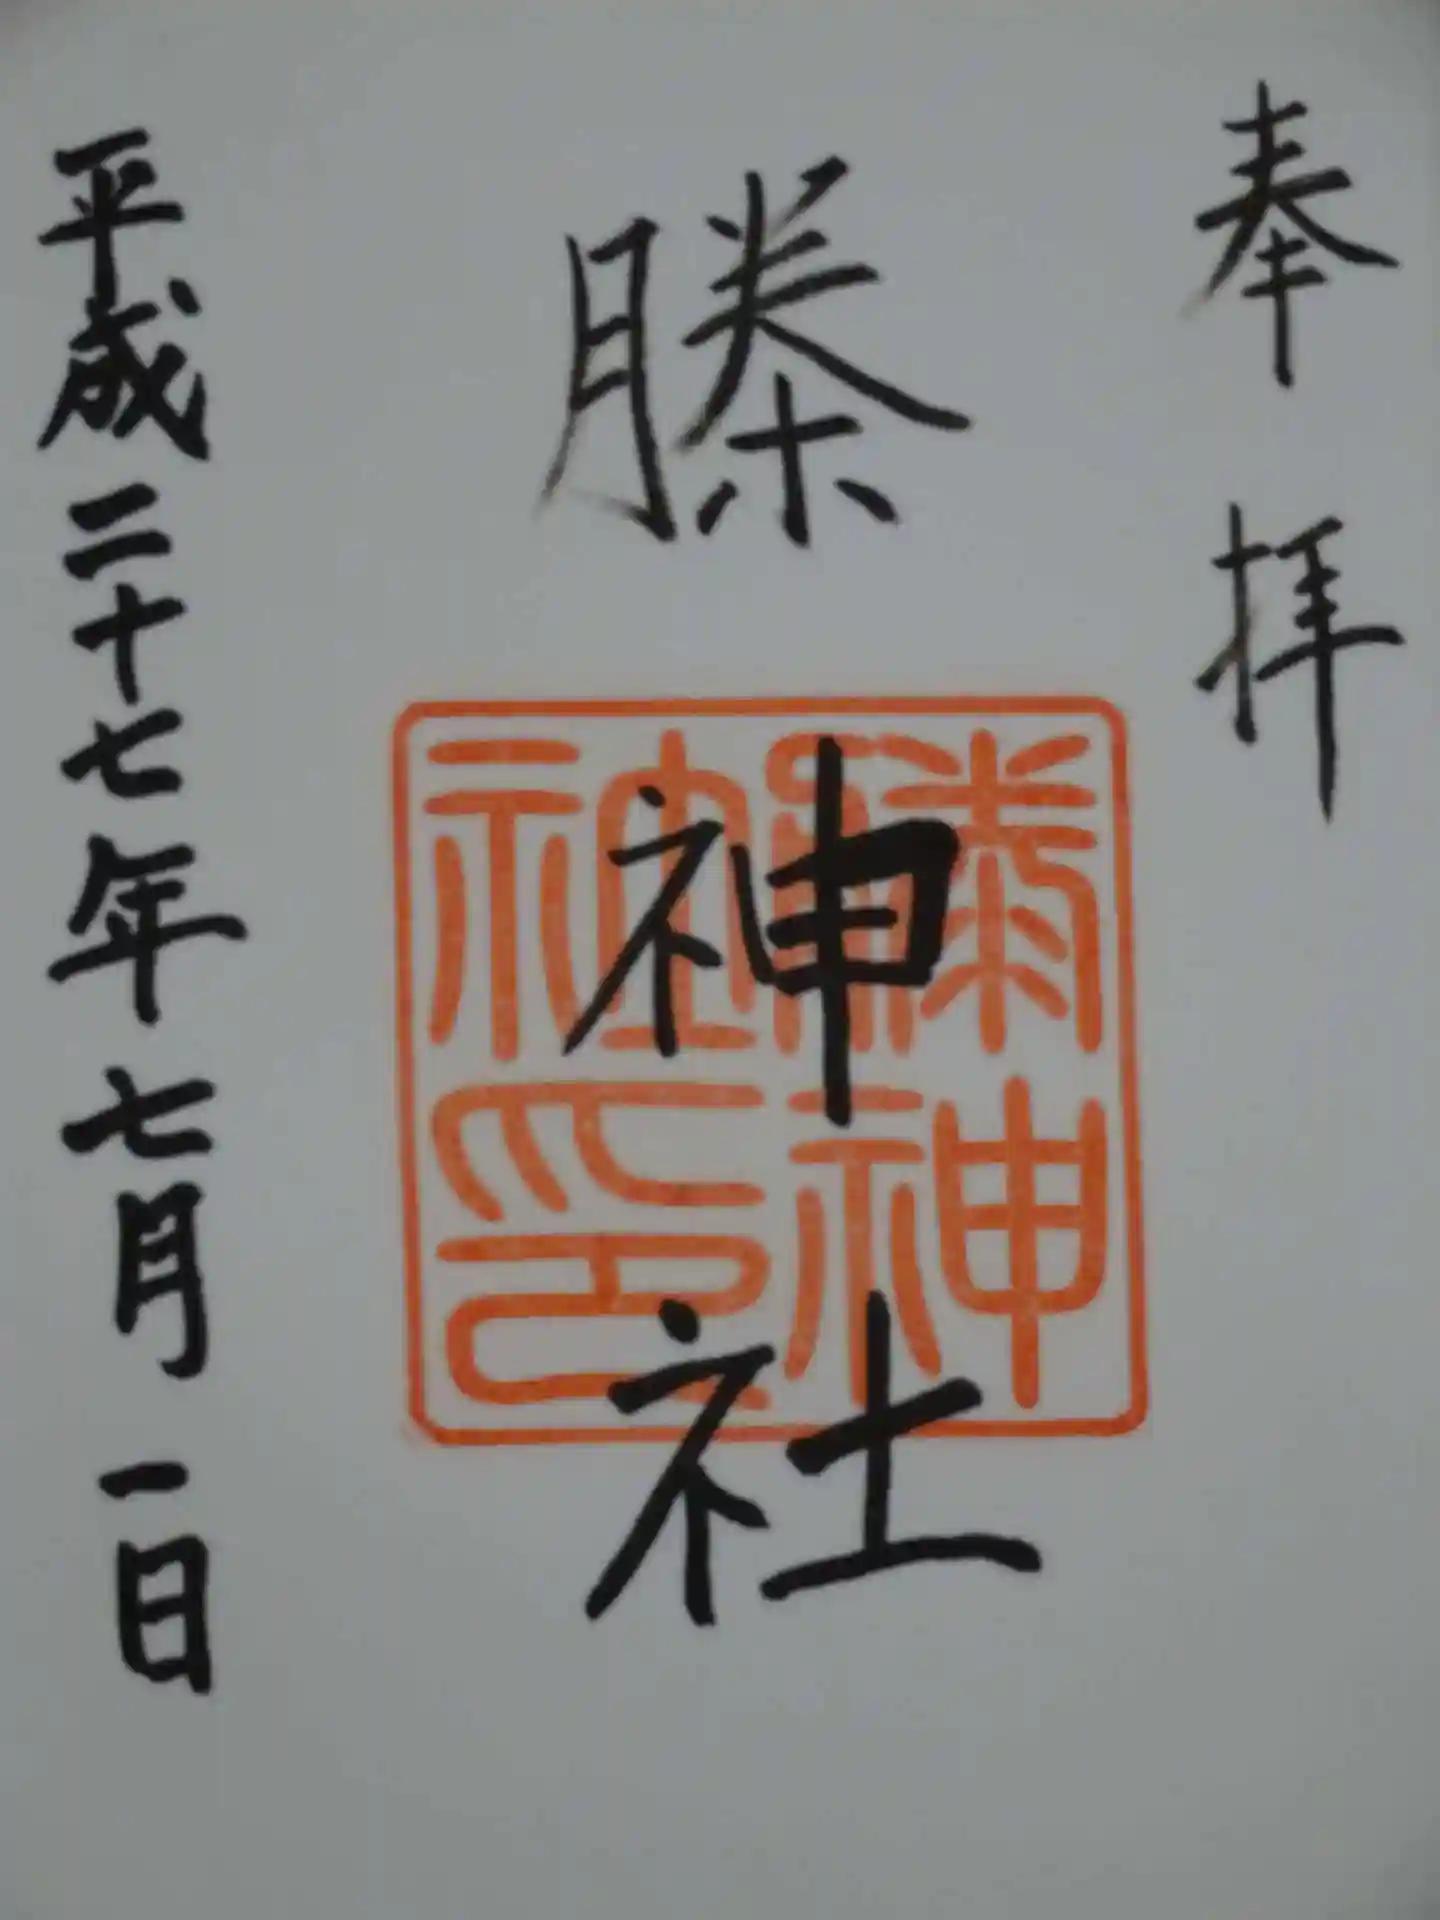 奉拝
榺神社
平成二十七年七月一日
榺神
社印